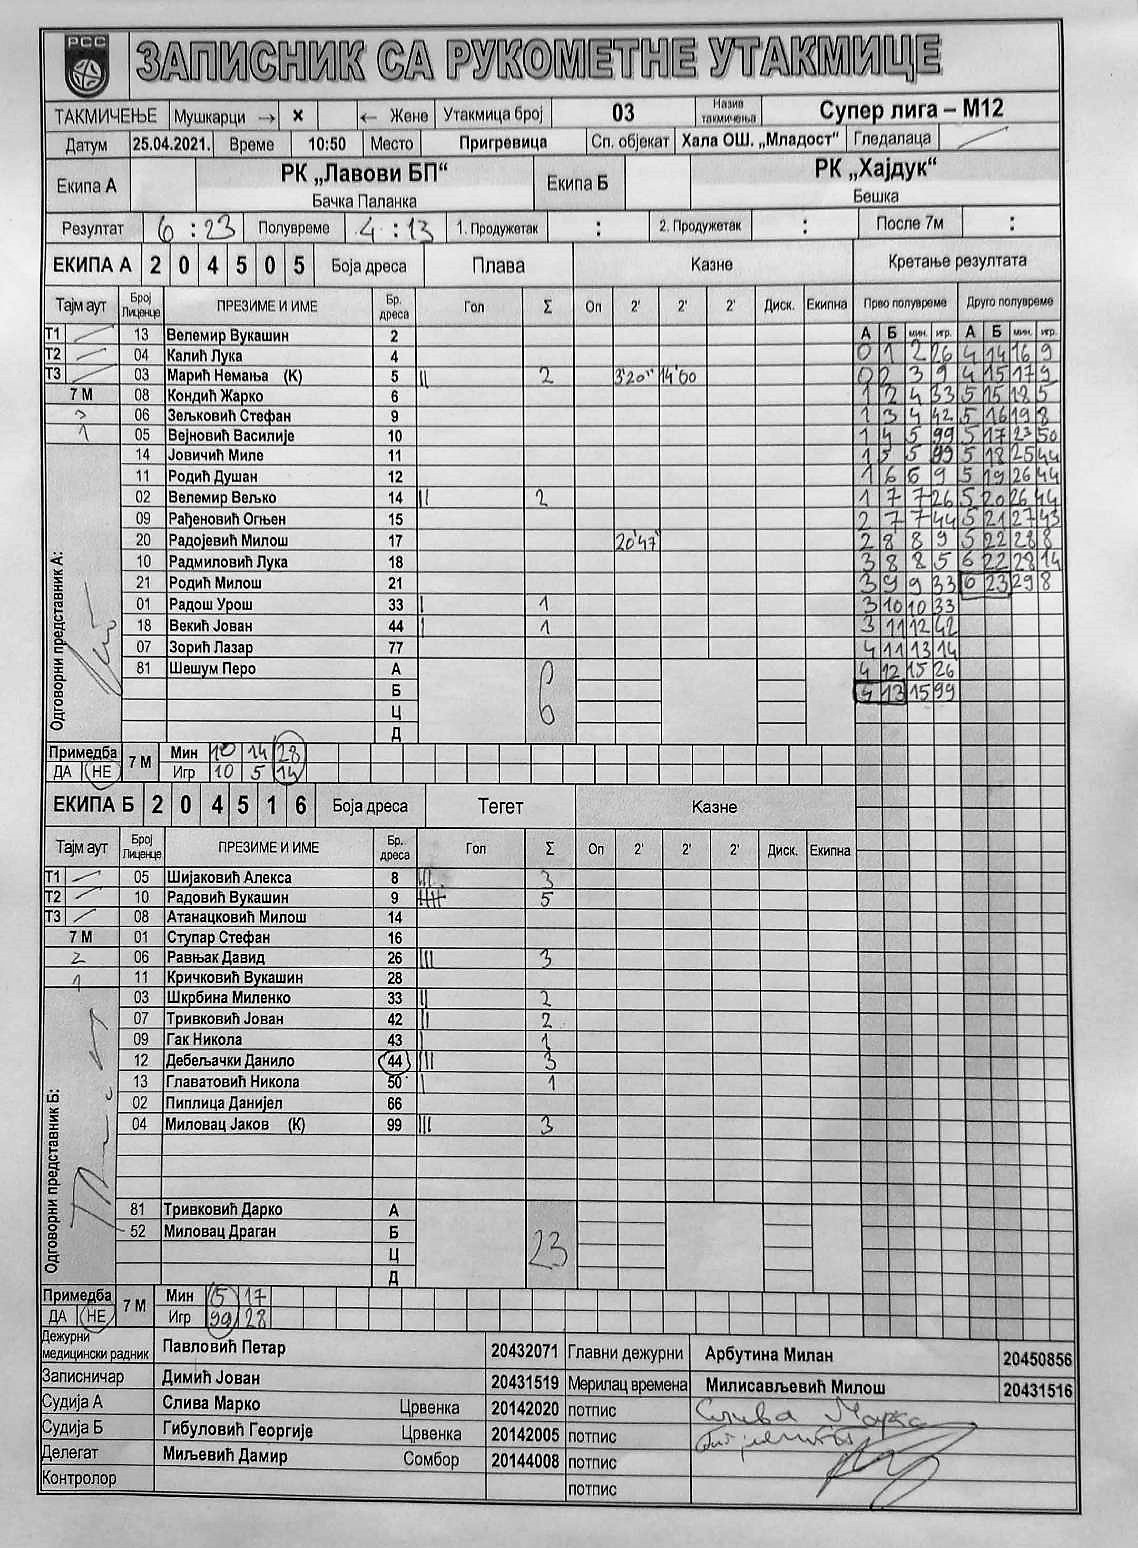 РСС ЗАПИСНИК СА РУКОМЕТНЕ УТАКМИЦЕ
ТАКМИЧЕЊЕ Мушкарци → × ← Жене Утакмица број 03 Назив такмичења Супер лига – М12
Датум 25.04.2021. Време 10:50 Место Пригревица Сп. објекат Хала ОШ. „Младост“ Гледалаца
Екипа А РК „Лавови БП“ Бачка Паланка Екипа Б РК „Хајдук“ Бешка
Резултат 6 : 23 Полувреме 4 : 13 1. Продужетак : 2. Продужетак : После 7м :
ЕКИПА А 2 0 4 5 0 5 Боја дреса Плава Казне Кретање резултата
Тајм аут Број Лиценце ПРЕЗИМЕ И ИМЕ Бр. дреса Гол Σ Оп 2' 2' 2' Диск. Екипна Прво полувреме Друго полувреме
А Б мин. игр. А Б мин. игр.
Т1 13 Велемир Вукашин 2
0 1 2 26 4 14 16 9
Т2 04 Калић Лука 4
0 2 3 9 4 15 17 9
Т3 03 Марић Немања (К) 5 || 2 3'20" 14'00
1 2 4 33 5 15 18 5
7 М 08 Кондић Жарко 6
1 3 4 42 5 16 19 8
3 06 Зељковић Стефан 9
1 4 5 99 5 17 23 50
1 05 Вејновић Василије 10
1 5 5 99 5 18 25 44
14 Јовичић Миле 11
1 6 6 9 5 19 26 44
11 Родић Душан 12
1 7 7 26 5 20 26 44
02 Велемир Вељко 14 || 2
2 7 7 44 5 21 27 43
09 Рађеновић Огњен 15
2 8 8 9 5 22 28 8
20 Радојевић Милош 17 20'47"
3 8 8 5 6 22 28 14
10 Радмиловић Лука 18
3 9 9 33 6 23 29 8
21 Родић Милош 21
3 10 10 33
01 Радош Урош 33 | 1
3 11 12 42
18 Векић Јован 44 | 1
4 11 13 14
07 Зорић Лазар 77
4 12 15 26
81 Шешум Перо А 6
4 13 15 99
Б
Ц
Д
Одговорни представник А:
Примедба ДА НЕ 7 М Мин 10 14 28
Игр 10 5 14
ЕКИПА Б 2 0 4 5 1 6 Боја дреса Тегет Казне
Тајм аут Број Лиценце ПРЕЗИМЕ И ИМЕ Бр. дреса Гол Σ Оп 2' 2' 2' Диск. Екипна
Т1 05 Шијаковић Алекса 8 ||| 3
Т2 10 Радовић Вукашин 9 5
Т3 08 Атанацковић Милош 14
7 М 01 Ступар Стефан 16
2 06 Равњак Давид 26 ||| 3
1 11 Кричковић Вукашин 28
03 Шкрбина Миленко 33 || 2
07 Тривковић Јован 42 || 2
09 Гак Никола 43 | 1
12 Дебељачки Данило 44 ||| 3
13 Главатовић Никола 50 | 1
02 Пиплица Данијел 66
04 Миловац Јаков (К) 99 ||| 3
81 Тривковић Дарко А 23
52 Миловац Драган Б
Ц
Д
Одговорни представник Б:
Примедба ДА НЕ 7 М Мин 15 17
Игр 99 28
Дежурни медицински радник Павловић Петар 20432071 Главни дежурни Арбутина Милан 20450856
Записничар Димић Јован 20431519 Мерилац времена Милисављевић Милош 20431516
Судија А Слива Марко Црвенка 20142020 потпис Слива Марко
Судија Б Гибуловић Георгије Црвенка 20142005 потпис
Делегат Миљевић Дамир Сомбор 20144008 потпис
Контролор потпис